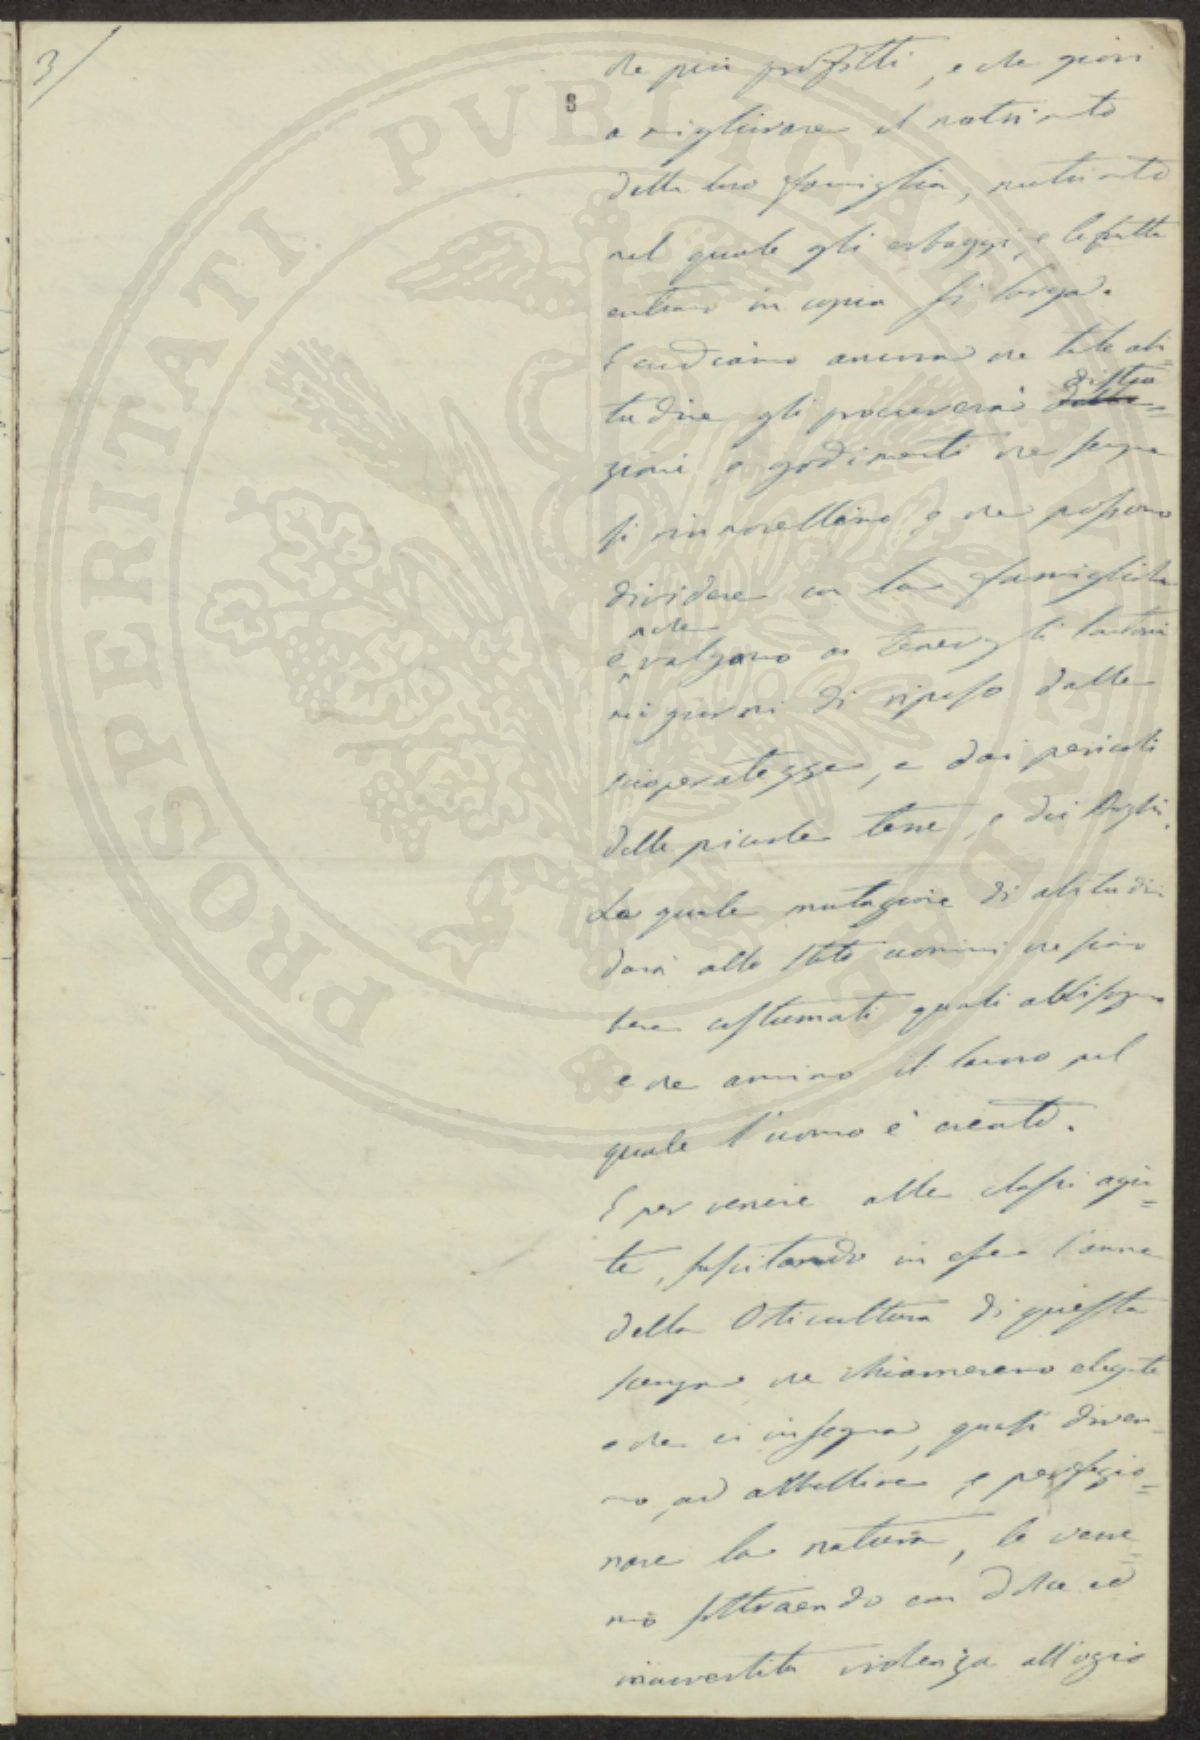 3/
8
che più profitti, e che giovi
a migliorare il nutrimento
della loro famiglia, nutrimento
nel quale gli erbaggi, e le frutta
entrano in copia sì larga.
E crediamo ancora che tale abi=
tudine gli procurerà distra=
zioni e godimenti che sempre
si rinnovellano e che possono
dividere con la famigliola
e che valgono a tenergli lontani
nei giorni di riposo dalle
scioperatezze, e dai pericoli
delle piccole terre, e dei Borghi.
La quale mutazione di abitudini
darà allo Stato uomini che siano
bene costumati quali abbisogna
e che amino il lavoro pel
quale l'uomo è creato.
E per venire alle classi agia=
te, suscitando in esse l'amore
della Orticultura di questa
scienza che chiameremo elegante
e che ci insegna, quasi direm=
mo, ad abbellire, e perfezio=
nare la natura, le verre=
mo sottraendo con dolce ed
inavvertita violenza all'ozio
PROSPERITATI PVBLICAE AVGENDAE